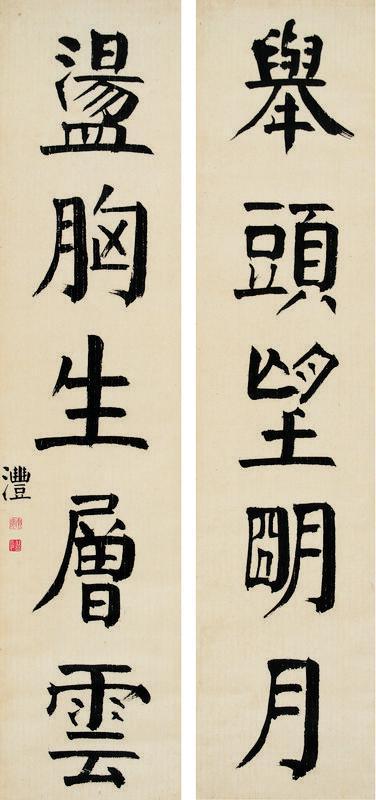 舉頭望朙月
盪胸生層雲
灃